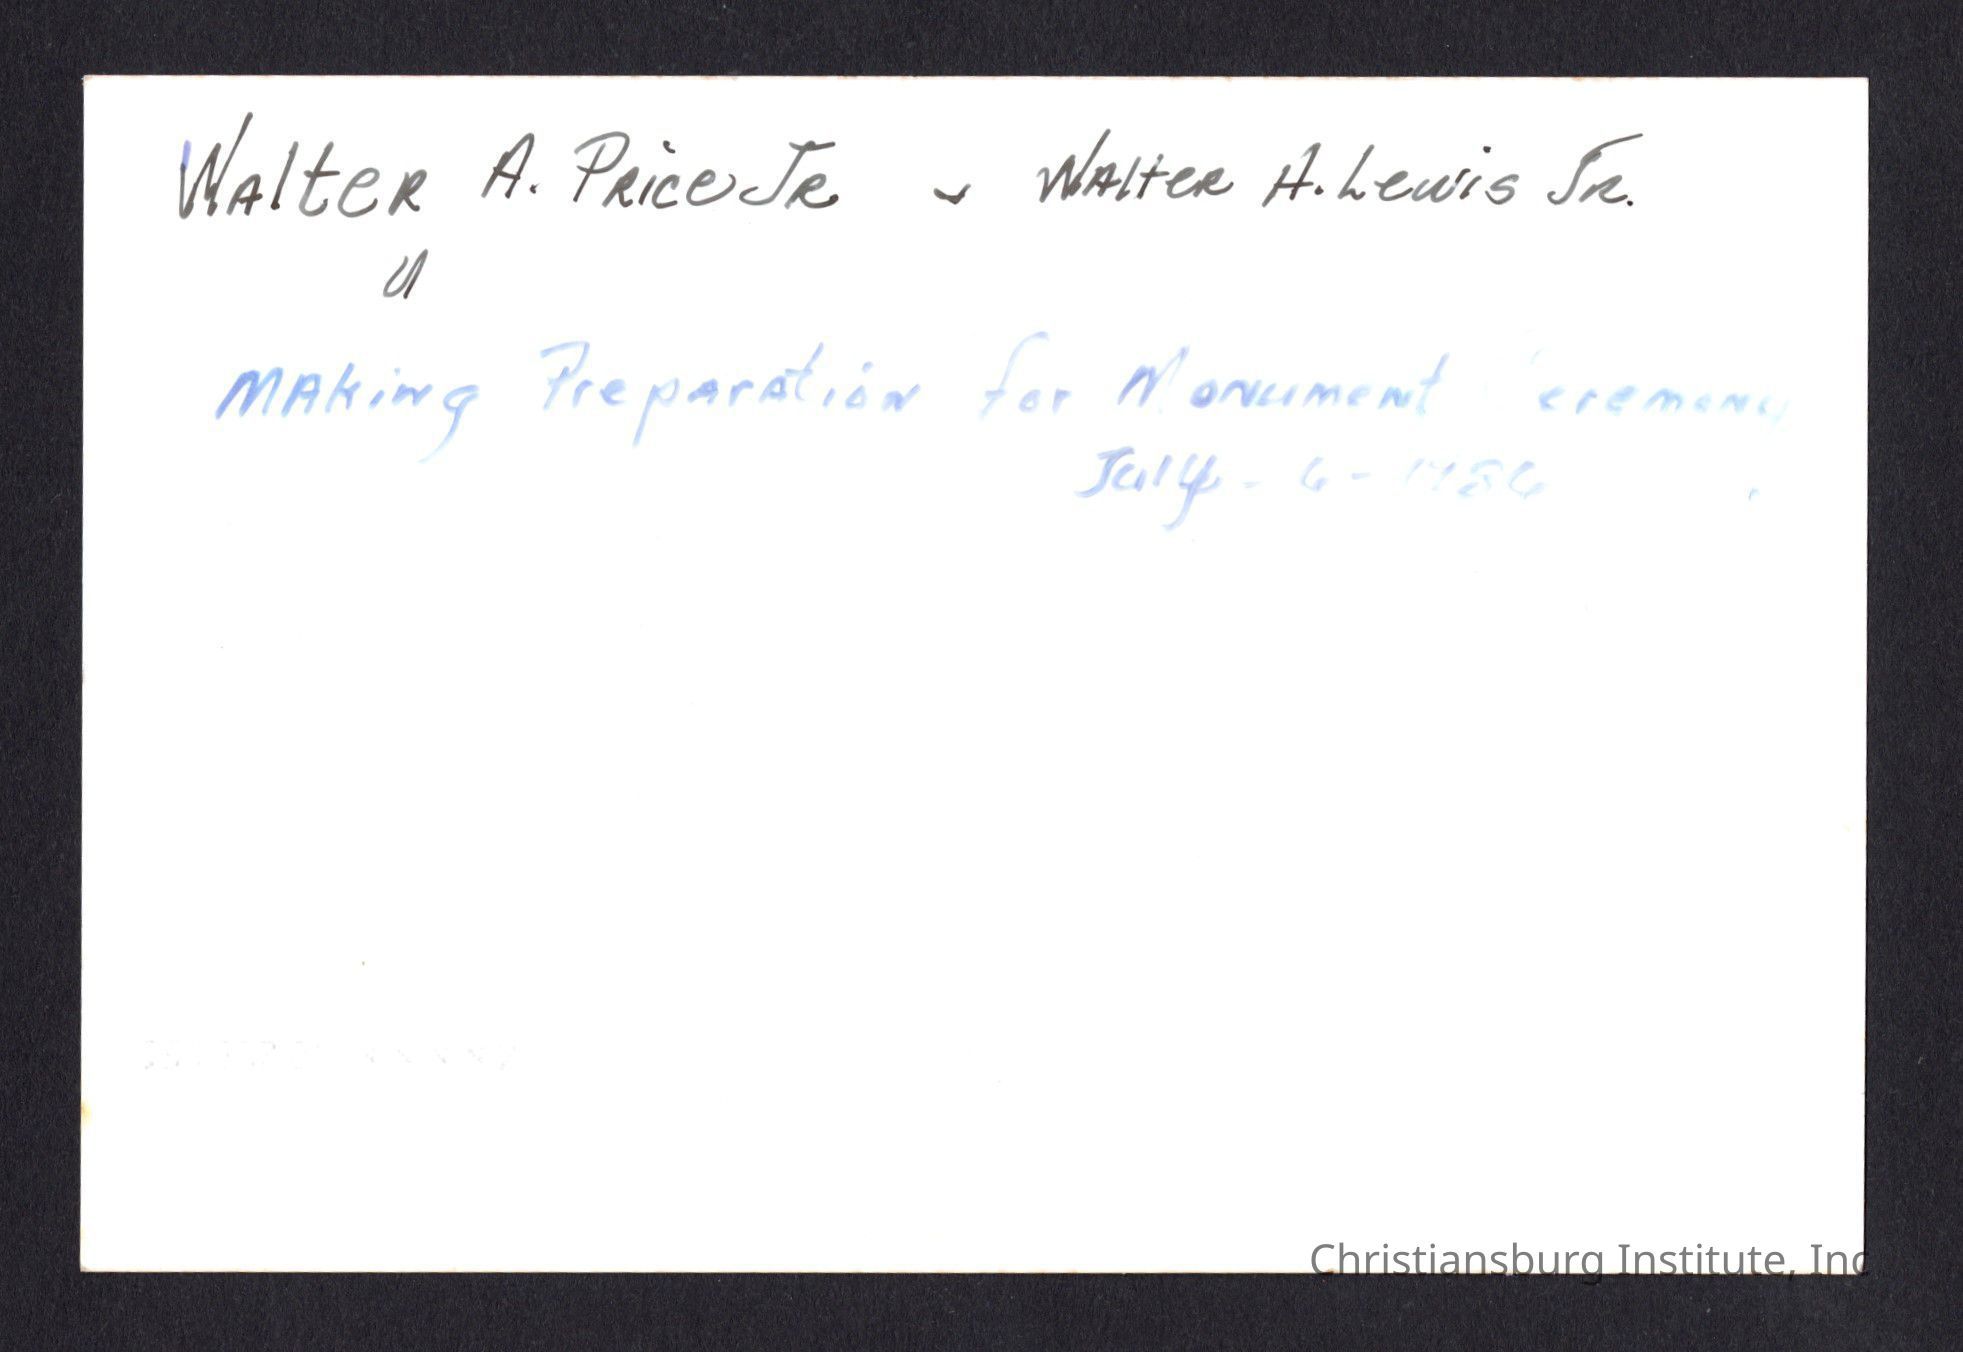 Walter A. Price Jr - Walter A. Lewis Jr.
Making Preparation for Monument Ceremony
July - 6 - 1986
Christiansburg Institute, Inc